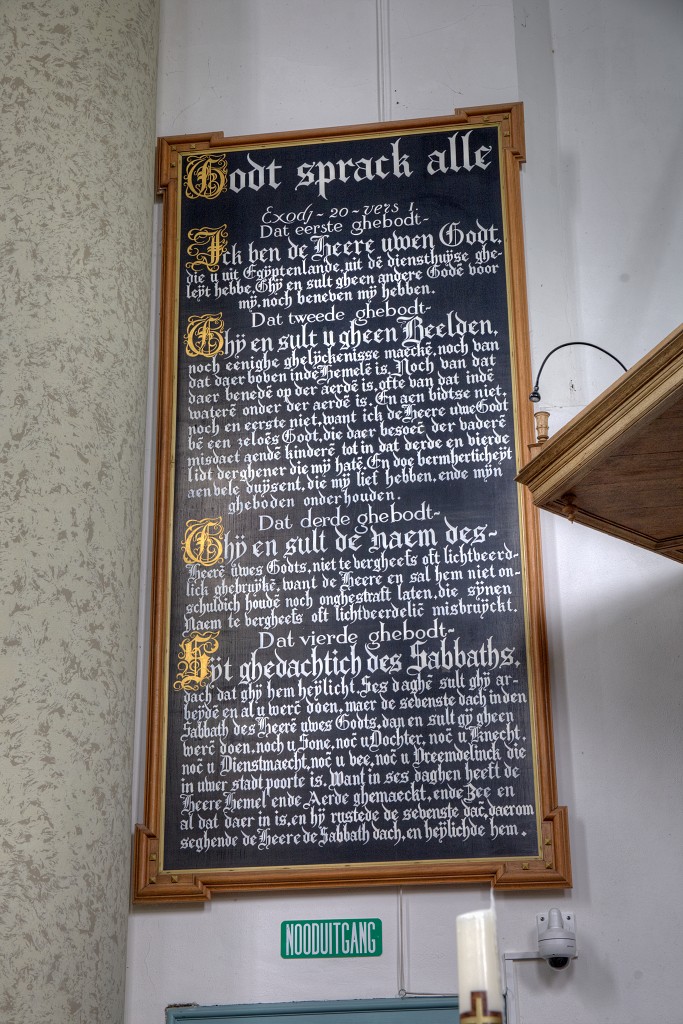 Godt sprack alle
Exodj - 20 - vers 1.
Dat eerste ghebodt-
Ick ben de Heere uwen Godt,
die u uit Egÿptenlande, uit dē diensthuÿse ghe-
leÿt hebbe, Ghÿ en sult gheen andere Godē voor
mÿ, noch beneven mÿ hebben.
Dat tweede ghebodt-
Ghÿ en sult u gheen Beelden,
noch eenighe ghelÿckenisse maeckē, noch van
dat daer boven indē Hemelē is, Noch van dat
daer benedē op der aerdē is, ofte van dat indē
waterē onder der aerdē is. En aen bidtse niet,
noch en eerste niet, want ick de Heere uwe Godt
bē een zeloēs Godt, die daer besoēt der vaderē
misdaet aendē kinderē tot in dat derde en vierde
lidt derghener die mÿ hatē, En doe bermherticheÿt
aen vele duÿsent, die mÿ lief hebben, ende mÿn
gheboden onderhouden.
Dat derde ghebodt-
Ghÿ en sult de naem des-
Heerē uwes Godts, niet te vergheefs oft lichtveerd-
lick ghebruÿkē, want de Heere en sal hem niet on-
schuldich houdē noch onghestraft laten, die sÿnen
Naem te vergheefs oft lichtveerdelic̄ misbruÿckt.
Dat vierde ghebodt-
Sÿt ghedachtich des Sabbaths,
dach dat ghÿ hem heÿlicht. Ses daghē sult ghÿ ar-
beÿdē en al u werc̄ doen, maer de sevenste dach inden
Sabbath des Heerē uwes Godts, dan en sult gÿ gheen
werc̄ doen, noch u Sone, noc̄ u Dochter, noc̄ u Knecht,
noc̄ u Dienstmaecht, noc̄ u vee, noc̄ u Vreemdelinck die
in uwer stadt poorte is. Want in ses daghen heeft de
Heere Hemel ende Aerde ghemaeckt, ende Zee en
al dat daer in is, en hÿ rustede de sevenste dac̄, daerom
seghende de Heere de Sabbath dach, en heÿlichde hem.
NOODUITGANG